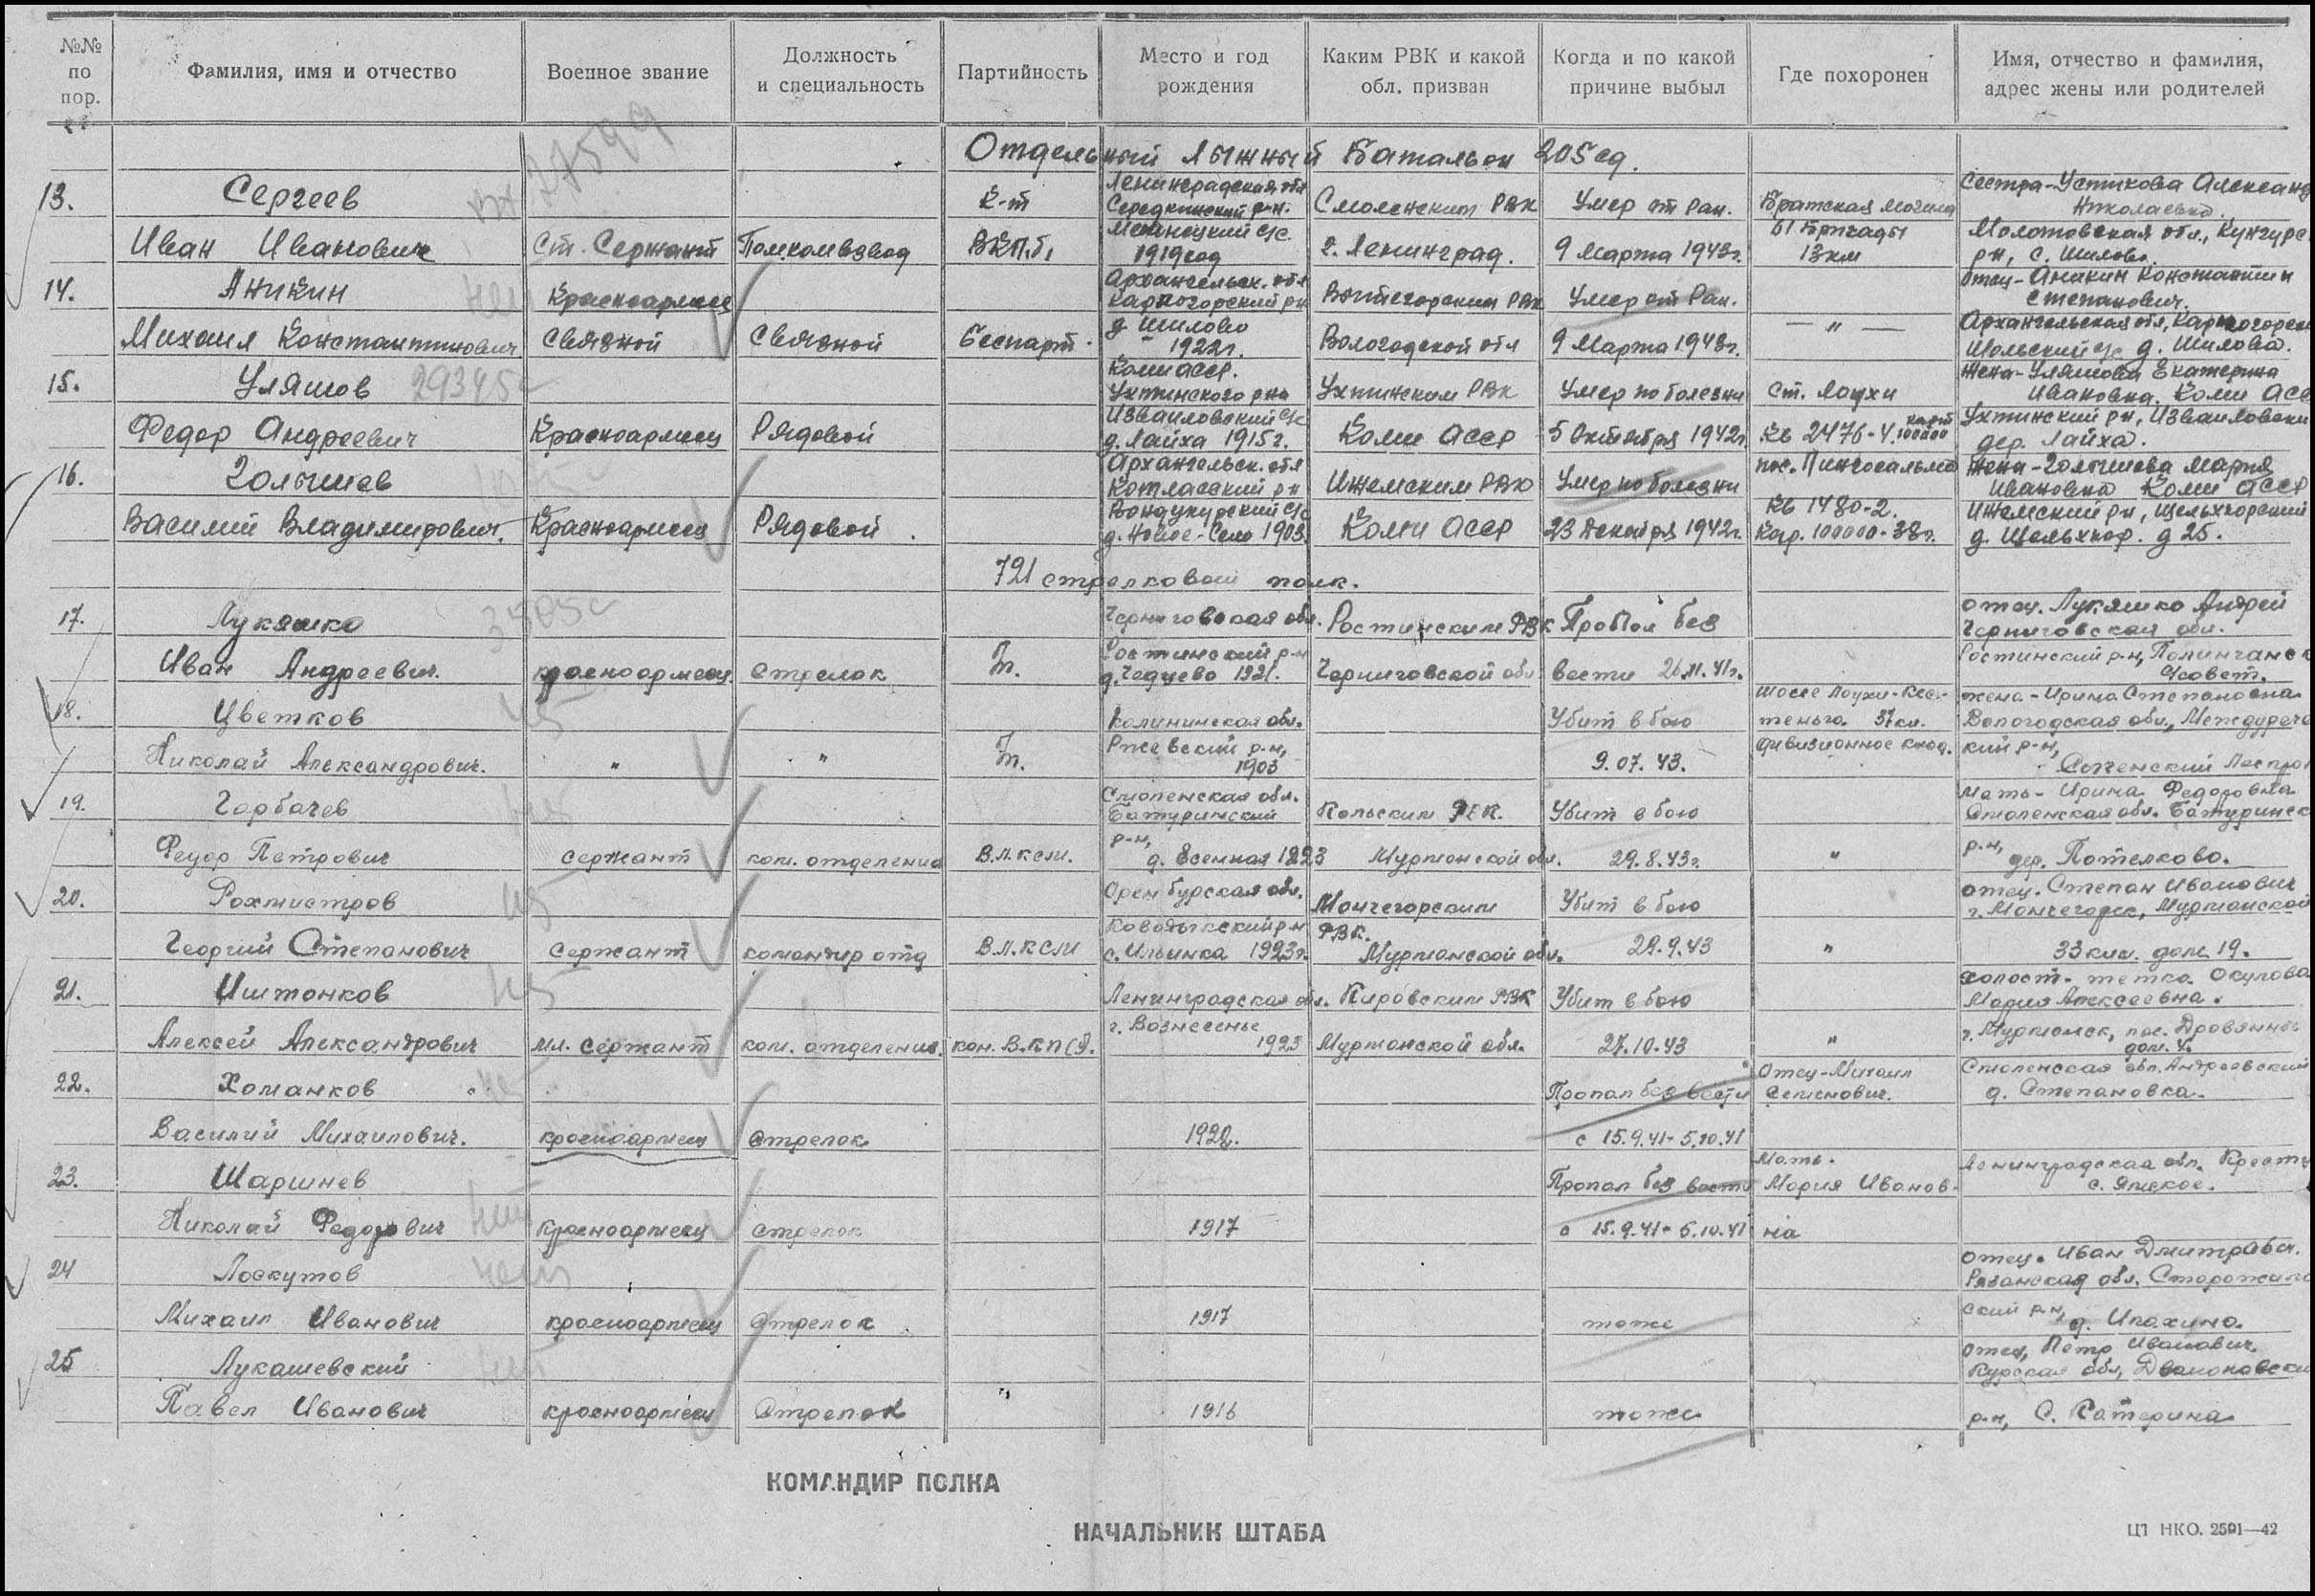 №№ по пор. Фамилия, имя и отчество Военное звание Должность и специальность Партийность Место и год рождения Каким РВК и какой обл. призван Когда и по какой причине выбыл Где похоронен Имя, отчество и фамилия, адрес жены или родителей
Отдельный Лыжный Батальон 205 сд.
13. Сергеев
Иван Иванович
Ст. Сержант
Помкомвзвод
К-т
ВКП.б,
Ленинградская обл
Середкинский р-н.
1919 год
Смоленским РВК
г. Ленинград.
Умер от Ран.
9 Марта 1943г.
Братская могила
61 Бригады
13 км
Сестра-Устикова Александ
Николаевна.
Молотовская обл., Кунгурс
рн, с. Шилово.
14. Аникин
Михаил Константинович
Красноармеец
Связной
Связной
Беспарт.
Архангельск. обл
Карпогорский рн
д Шилово
1922г.
Вытегорским РВК
Вологодской обл
Умер от Ран.
9 Марта 1943г.
— " —
отец-Аникин Константин
Степанович.
Архангельская обл, Карпогорск
д. Шилова.
15. Уляшов 29345с
Федор Андреевич
Красноармеец
Рядовой
Коми АССР.
Ухтинского рна
Изваиловский с/с
д. Лайха 1915г.
Ухтинским РВК
Коми АССР
Умер по болезни
5 Октября 1942г.
ст. Лоухи
Кв 2476-4. карт 100000
Жена-Уляшова Екатерина
Ивановна. Коми АССР
Ухтинский рн, Изваиловски
дер. Лайха.
16. Голышев
Василий Владимирович.
Красноармеец
Рядовой.
Архангельск. обл
Котласский рн
Вондукурский с/с
д. Новое-Село 1903.
Ижемским РВК
Коми АССР
Умер по болезни
23 Декабря 1942г.
пос. Пингосальма
Кв 1480-2.
Кар. 100000-38г.
Жена-Голышева Мария
Ивановна Коми АССР
Ижемский рн,
д. 25.
721 стрелковый полк.
17. Лукашко
Иван Андреевич.
красноармеец.
стрелок
Черниговская обл.
Ростинский р-н
1921.
Ростинским РВК
Черниговской обл
Пропал без
вести 26.11.41г.
отец. Лукашко Андрей
Черниговская обл.
Ростинский р-н,
с/совет.
18. Цветков
Николай Александрович.
"
"
Калининская обл.
Ржевский р-н,
1903
Убит в бою
9.07.43.
шоссе Лоухи-Кес-
теньга. 37 км.
дивизионное клад.
жена-Ирина Степановна
Вологодская обл., Междуречен
кий р-н,
19. Горбачев
Федор Петрович
сержант
ком. отделения
В.Л.КСМ.
Смоленская обл.
Батуринский
р-н,
д. Осенная 1923
Кольским РВК.
Мурманской обл.
Убит в бою
29.8.43г.
"
мать-Ирина Федоровна
Смоленская обл. Батуринск
р-н,
дер. Потелково.
20. Рохмистров
Георгий Степанович
сержант
командир отд
В.Л.КСМ
Оренбургская обл.
с. Ильинка 1923г.
Мончегорским
РВК.
Мурманской обл.
Убит в бою
29.9.43
"
отец. Степан Иванович
г. Мончегорск, Мурманской
33 км. дом 19.
21. Иштонков
Алексей Александрович
мл. сержант
ком. отделения.
кан. В.КП(б).
Ленинградская обл.
г. Вознесенье
1923
Кировским РВК
Мурманской обл.
Убит в бою
27.10.43
"
холост-тетка Осупова
Мария Алексеевна.
г. Мурманск, пос. Дровянное
дом. 4.
22. Хоманков
Василий Михаилович.
красноармеец
Стрелок
1922.
Пропал без вести
с 15.9.41-5.10.41
Отец-Михаил
Семенович.
Смоленская обл. Андреевский
д. Степановка.
23. Шаршнев
Николай Федорович
красноармеец
стрелок
1917
Пропал без вести
с 15.9.41-5.10.41
Мать.
Мария Иванов-
на
Ленинградская обл. Крестц
с. Ямское.
24 Лоскутов
Михаил Иванович
красноармеец
Стрелок
1917
тоже
отец. Иван Дмитриев.
Рязанская обл. Старожило
ский р-н, д. Ипахино.
25 Лукашевский
Павел Иванович
красноармеец
Стрелок
1916
тоже
отец, Петр Иванович.
Курская обл,
р-н, С. Катерина
КОМАНДИР ПОЛКА
НАЧАЛЬНИК ШТАБА
ЦТ НКО. 2591—42